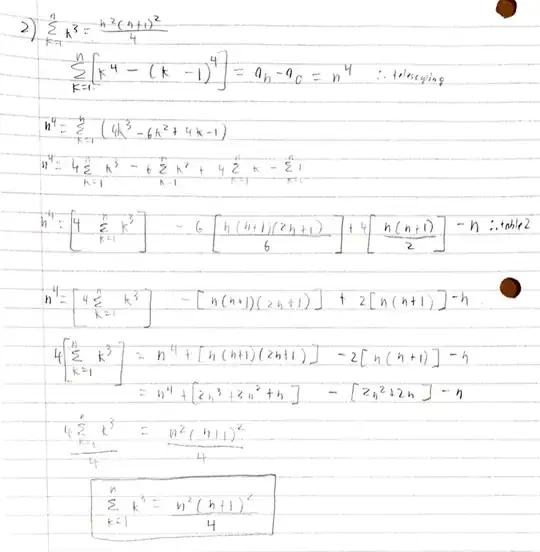 2) ∑_{k=1}^{n} k³ = n²(n+1)²/4
∑_{k=1}^{n} [k⁴ - (k - 1)⁴] = a_n - a_0 = n⁴ ∴ telescoping
n⁴ = ∑_{k=1}^{n} (4k³ - 6k² + 4k - 1)
n⁴ = 4∑_{k=1}^{n} k³ - 6∑_{k=1}^{n} k² + 4∑_{k=1}^{n} k - ∑_{k=1}^{n} 1
n⁴ = [4 ∑_{k=1}^{n} k³] - 6 [n(n+1)(2n+1)/6] + 4[n(n+1)/2] - n ∴ table 2
n⁴ = [4∑_{k=1}^{n} k³] - [n(n+1)(2n+1)] + 2[n(n+1)] - n
4[∑_{k=1}^{n} k³] = n⁴ + [n(n+1)(2n+1)] - 2[n(n+1)] - n
= n⁴ + [2n³ + 2n² + n] - [2n² + 2n] - n
4∑_{k=1}^{n} k³/4 = n²(n+1)²/4
∑_{k=1}^{n} k³ = n²(n+1)²/4